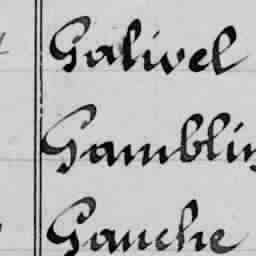 Galivel
Gamblin
Gauche